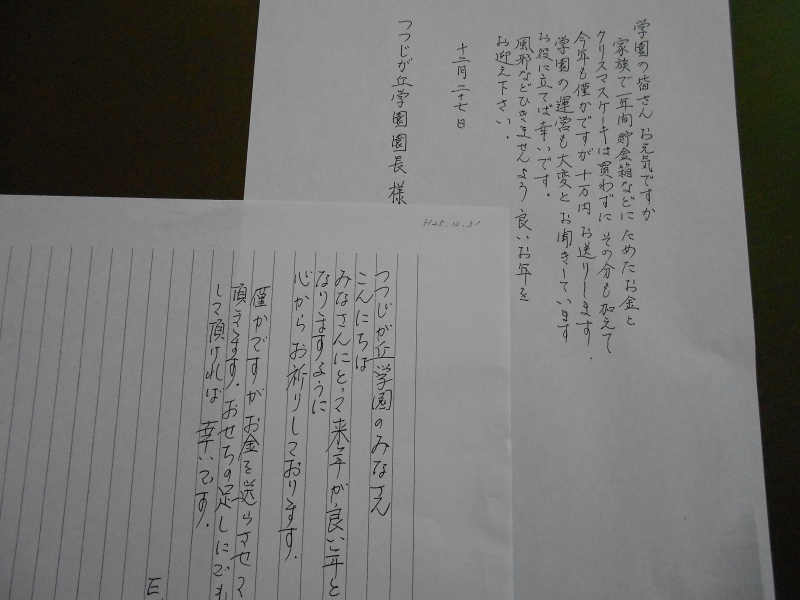 学園の皆さん お元気ですか
家族で一年間貯金箱などに ためたお金と
クリスマスケーキは買わずに その分も加えて
今年も僅かですが 十万円 お送りします.
学園の 運営も大変と お聞きしています
お役に立てば幸いです。
風邪などひきませんよう 良いお年を
お迎え下さい.
十二月 二十七日
つつじが丘学園園長 様
H25.12.31
つつじが丘学園のみなさん
こんにちは
みなさんにとって来年が良い年と
なりますように
心から お祈りしております.
僅かですが お金を送らさせて
頂きます. おせちの足しにでも
して頂ければ 幸いです.
E.